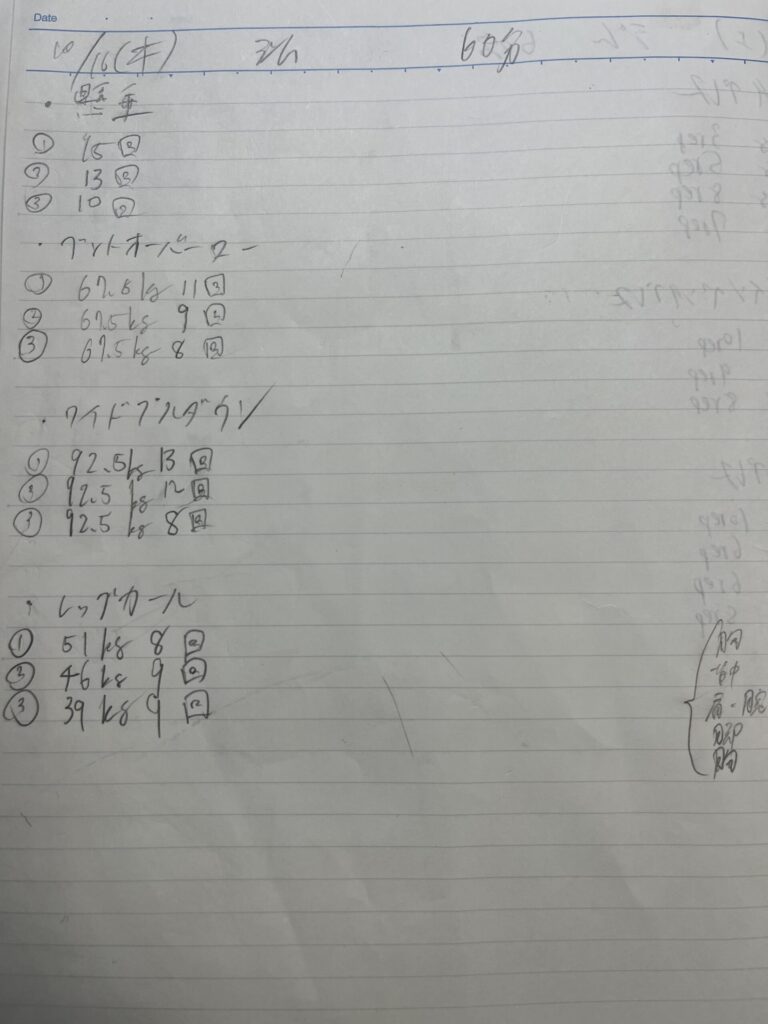 Date
10/16(木) ジム 60分
・懸垂
① 15回
② 13回
③ 10回
・ベントオーバーロー
① 67.5kg 11回
② 67.5kg 9回
③ 67.5kg 8回
・ワイドプルダウン
① 92.5kg 13回
② 92.5kg 12回
③ 92.5kg 8回
・レッグカール
① 51kg 8回
② 46kg 9回
③ 39kg 9回
胸
背中
肩・腕
脚
胸